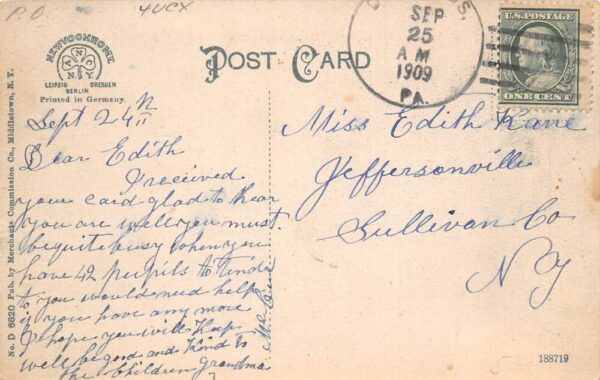 P.O.
4UCX
NEWVOCHROME
A N C
N.Y.
LEIPZIG DRESDEN
BERLIN
Printed in Germany.
POST CARD
S.
SEP
25
A M
1909
PA.
U.S. POSTAGE
ONE CENT
No. D 6820 Pub. by Merchants Commission Co., Middletown, N. Y.
Sept 24th
Dear Edith
I received
your card glad to hear
you are well you must
be quite busy when you
have 42 pupils to tende
to you would need help
if you have any more
I hope you will Keep
well be good and Kind to
the children Grandma
Miss Edith Kane
Jeffersonville
Sullivan Co
N Y
188719